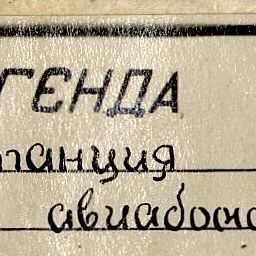 ГЕНДА
танция
авиабом